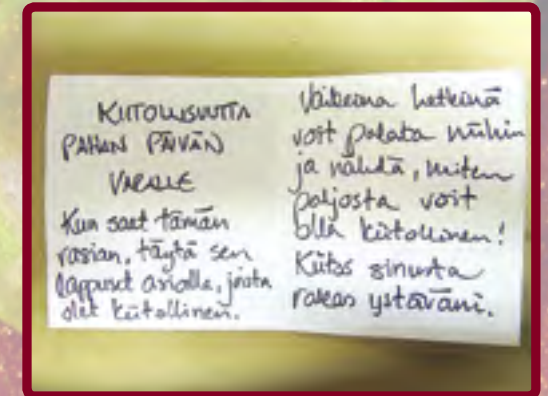 KIITOLLISUUTTA
PAHAN PÄIVÄN
VARALLE
Kun saat tämän
rasian, täytä sen
laput asioilla, joista
olet kiitollinen.
Vaikeina hetkinä
voit palata niihin
ja nähdä, miten
paljosta voit
olla kiitollinen!
Kiitos sinusta
rakas ystäväni.